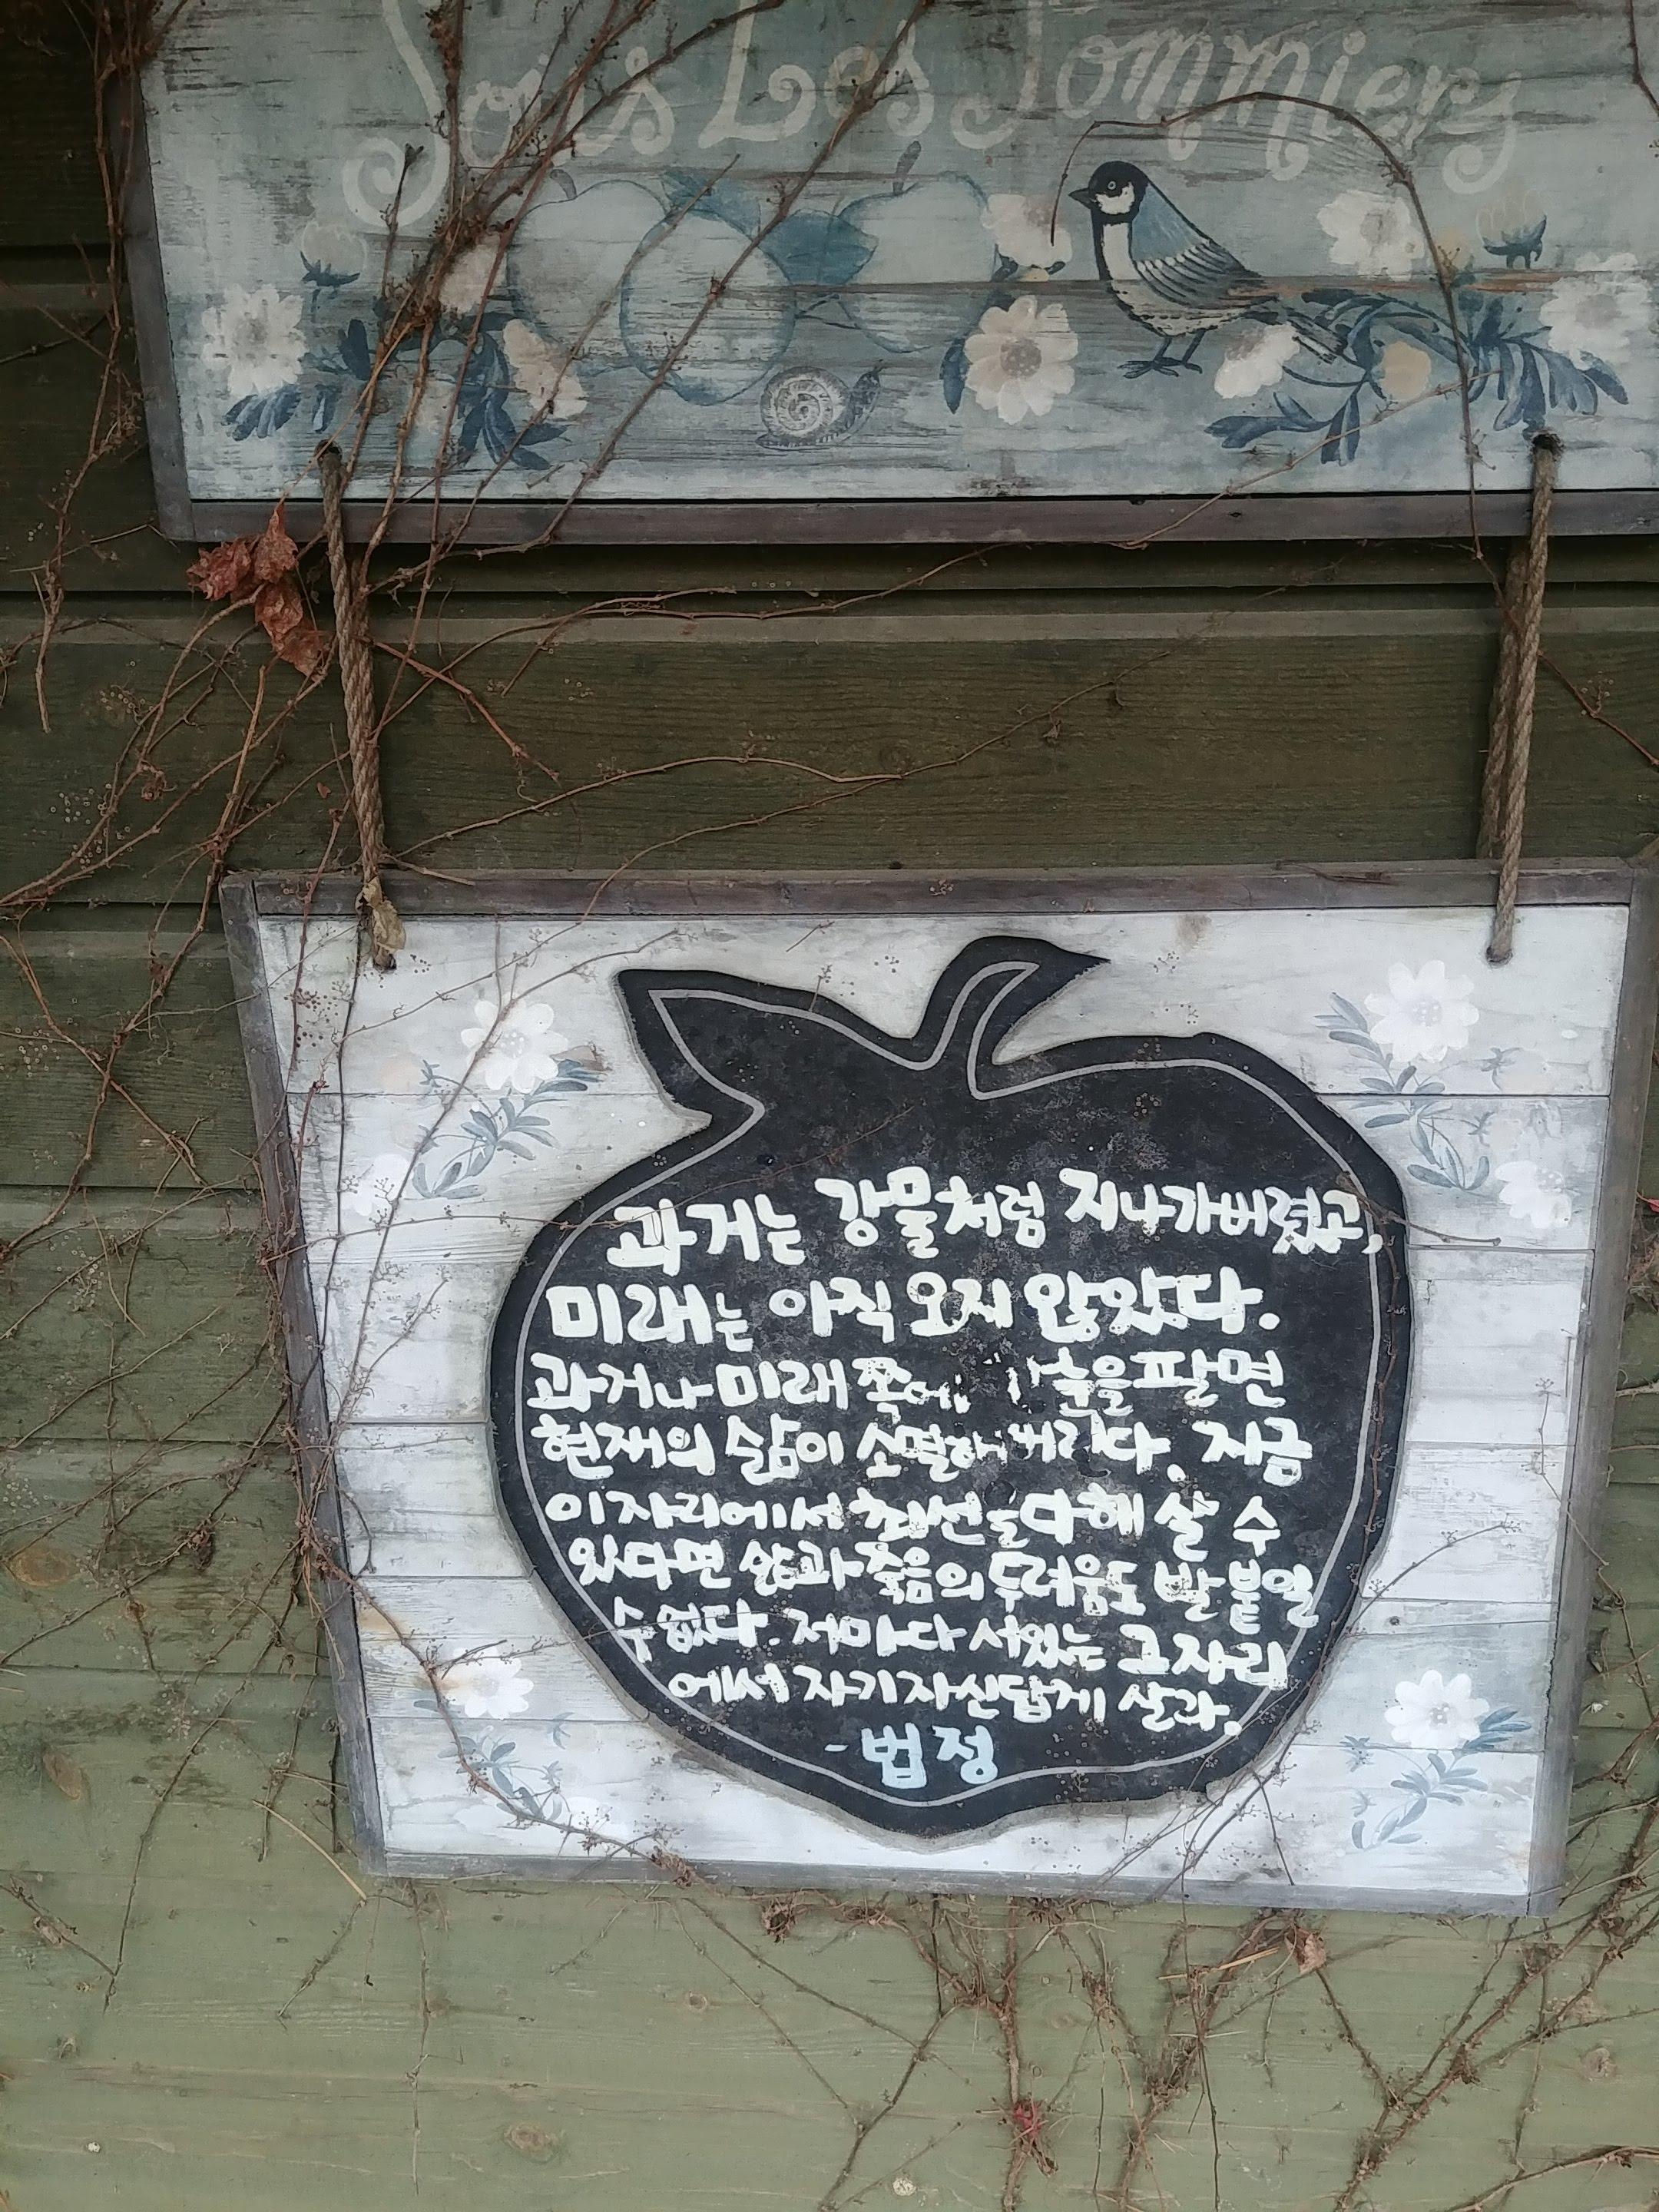 Sous Les Pommiers
과거는 강물처럼 지나가버렸고,
미래는 아직 오지 않았다.
과거나 미래 쪽에 을 팔면
현재의 삶이 소멸해 버린다. 지금
이자리에서 최선을 다해 살 수
있다면 삶과 죽음의 두려움도 발 붙일
수 없다. 저마다 서있는 그자리
에서 자기자신답게 살라.
- 법정